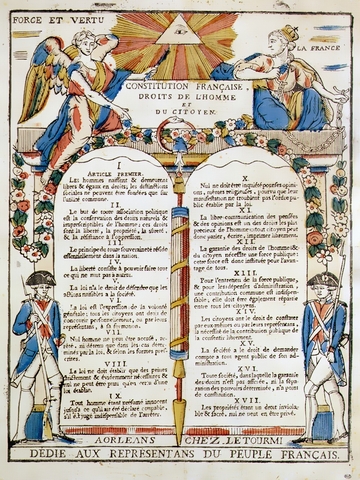 FORCE ET VERTU
LA FRANCE
CONSTITUTION FRANÇAISE,
DROITS DE L'HOMME
ET
DU CITOYEN.
I
ARTICLE PREMIER.
Les hommes naissent & demeurent
libres & égaux en droits; les distinctions
sociales ne peuvent être fondées que sur
l'utilité commune.
II.
Le but de toute association politique
est la conservation des droits naturels &
imprescriptibles de l'homme; ces droits
sont la liberté, la propriété, la sûreté,
& la résistance à l'oppression.
III.
Le principe de toute souveraineté réside
essentiellement dans la nation.
IV.
La liberté consiste à pouvoir faire tout
ce qui ne nuit pas à autrui.
V.
La loi n'a le droit de défendre que les
actions nuisibles à la société.
VI.
La loi est l'expression de la volonté
générale; tous les citoyens ont droit de
concourir personnellement, ou par leurs
représentans, à sa formation.
VII.
Nul homme ne peut être accusé, arrêté,
ni détenu que dans les cas déterminés
par la loi, & selon les formes prescrites.
VIII.
La loi ne doit établir que des peines
strictement & évidemment nécessaires &
nul ne peut être puni qu'en vertu d'une
loi établie.
IX.
Tout homme étant présumé innocent
jusqu'à ce qu'il ait été déclaré coupable,
s'il est jugé indispensable de l'arrêter.
X.
Nul ne doit être inquiété pour ses opinions,
mêmes religieuses, pourvu que leur
manifestation ne troublent pas l'ordre public
établie par la loi.
XI.
La libre communication des pensées
& des opinions est un des droits les plus
précieux de l'homme: tout citoyen peut
donc parler, écrire, imprimer librement.
XII.
La garantie des droits de l'homme & du
citoyen nécessite une force publique:
cette force est donc instituée pour l'avantage
de tous.
XIII.
Pour l'entretien de la force publique,
& pour les dépenses d'administration,
une contribution commune est indispensible,
elle doit être également répartie
entre tous les citoyens.
XIV.
Les citoyens ont le droit de constater
par eux-mêmes ou par leurs représentans,
la nécessité de la contribution publique de
la consentir librement.
XV.
La société a le droit de demander
compte à tout agent public de son administration.
XVI.
Toute société, dans laquelle la garantie
des droits n'est pas assurée, ni la séparation
des pouvoirs déterminée, n'a point
de constitution.
XVII.
Les propriétés étant un droit inviolable
& sacré, nul ne peut en être privé.
A ORLEANS CHEZ LETOURMI
DÉDIÉ AUX REPRESENTANS DU PEUPLE FRANÇAIS.